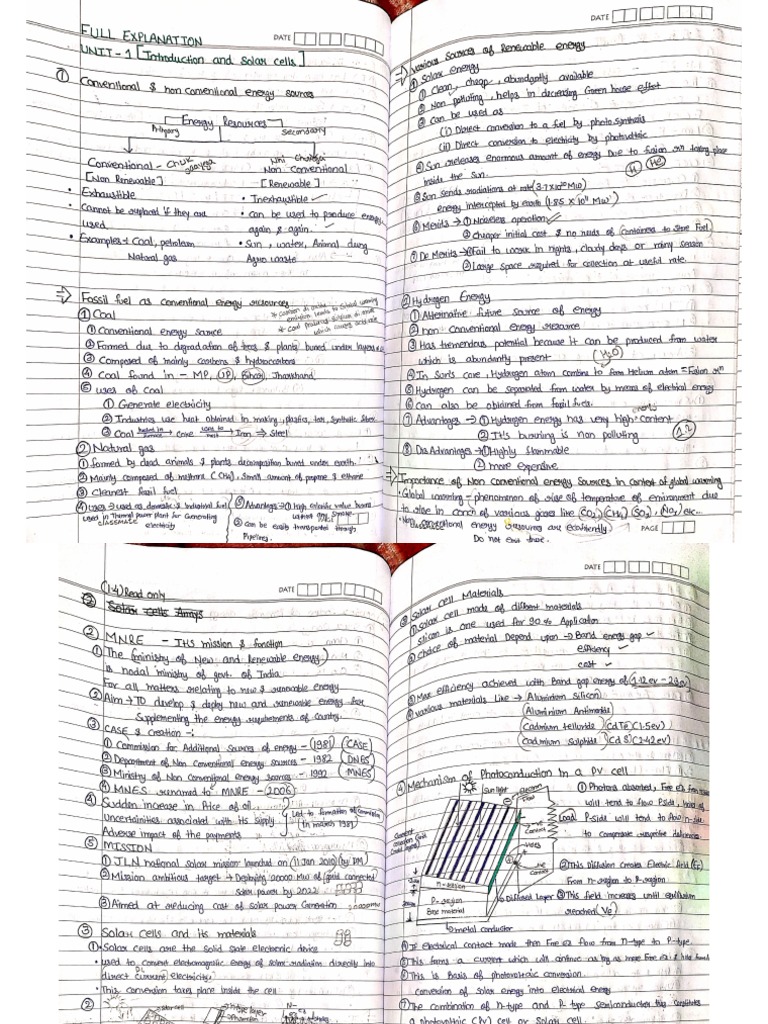 FULL EXPLANATION
DATE
UNIT-1 [Introduction and Solar cells]
① Conventional & non conventional energy sources
Energy Resources
Primary
Secondary
Conventional - Chuk jaayega
Non Conventional
[Non Renewable]
[Renewable]
• Exhaustible
• Inexhaustible
• Cannot be replaced if they are used.
• can be used to produce energy again & again.
• Examples → Coal, petroleum
Natural gas
• Sun, water, Animal dung
Agro waste
⇒ Fossil fuel as conventional energy resources
① Coal
① Conventional energy source
② Formed due to degradation of trees & plants buried under layers
③ Composed of mainly carbons & hydrocarbons
④ Coal found in - MP, UP, Bihar, Jharkhand
⑤ uses of Coal
① Generate electricity
② Industries use heat obtained in making, plastics, tar, Synthetic fiber
③ Coal → Coke → Iron ⇒ Steel
② Natural gas
① formed by dead animals & plants decomposition buried under earth.
② Mainly composed of methane (CH4), small amount of propane & ethane
③ Cleanest fossil fuel
④ uses → used as domestic & industrial fuel
used in Thermal power plant for Generating
electricity
CLASSMATE
⑤ Advantages → ① High calorific value burns
without any smoke.
② can be easily transported through
Pipelines.
PAGE
DATE
⇒ Various Sources of Renewable energy
① Solar Energy
① Clean, cheap, abundantly available
② Non polluting, helps in decreasing Green house effect
③ Can be used as
(i) Direct conversion to a fuel by photosynthesis
(ii) Direct conversion to electricity by photovoltaic
④ Sun releases enormous amount of energy Due to fusion rxn taking place
inside the Sun.
H He
⑤ Sun sends radiations at rate (3.7×10²⁰ MW)
energy intercepted by earth (1.85 × 10¹¹ MW)
⑥ Merits → ① Noiseless operation
② Cheaper initial cost & no needs of Containers to store Fuel
⑦ De Merits → ① Fail to work in nights, cloudy days or rainy season
② Large space required for collection at useful rate.
② Hydrogen Energy
① Alternative future source of energy
② non Conventional energy resource
③ Has tremendous potential because it can be produced from water
which is abundantly present (H2O)
④ In Sun's core, Hydrogen atom combine to form Helium atom = Fusion rxn
⑤ Hydrogen can be separated from water by means of electrical energy
⑥ Can also be obtained from fossil fuels.
⑦ Advantages → ① Hydrogen energy has very high content
② It's burning is non polluting
⑧ Dis Advantages → ① Highly flammable
② more expensive
⇒ Importance of Non Conventional energy Sources in context of global warming
• Global warming - phenomenon of rise of temperature of environment due
to rise in concn of various gases like (CO2) (CH4) (SO2), (NO2) etc...
• Non conventional energy resources are ecofriendly
Do not
PAGE
(1.4) Read only
DATE
② Solar Cells Arrays
② MNRE - Its mission & function
① The ministry of New and Renewable energy
is nodal ministry of govt. of India
For all matters relating to new & renewable energy
② Aim → To develop & deploy new and renewable energy for
Supplementing the energy requirements of Country.
③ CASE & creation -:
① Commission for Additional Sources of energy - (1981) (CASE)
② Department of Non Conventional energy sources - 1982 (DNES)
③ Ministry of Non Conventional energy sources - 1992 (MNES)
④ MNES renamed to MNRE - (2006)
④ Sudden increase in Price of oil
Uncertainities associated with its supply
Adverse impact of the payments
Led to formation of commission
(in march 1981)
⑤ MISSION
① JLN national solar mission launched on (11 Jan 2010) (by PM)
② Mission ambitious target → Deploying 20000 MW of grid connected
Solar power by 2022
③ Aimed at reducing cost of solar power Generation
③ Solar cells and its materials
① • Solar cells are the solid state electronic device
• used to convert electromagnetic energy of solar radiation directly into
direct Current electricity
DC
• This conversion takes place inside the cell
②
DATE
② Solar Cell Materials
① Solar cell made of different materials
silicon is one used for 90% Application
② choice of material Depend upon → Band energy gap
efficiency
cost
③ Max efficiency achieved with Band gap energy of
④ various materials Like → Aluminium Silicon
Aluminium Antimonide
Cadmium telluride (CdTe) (1.5ev)
Cadmium Sulphide (CdS) (2.42ev)
④ Mechanism of Photoconduction in a PV cell
Sun light
Electron Flow
Load
Contact
Holes
Contact
n-region
P-region
Base material
Diffused Layer
metal conductor
① Photons absorbed, Free e's from
will tend to flow P side, holes of
P-side will tend to flow n-side
to compensate respective deficiencies.
② This Diffusion creates Electric field (EF)
From n-region to P-region
③ This field increases until equilibrium
reached (Ve)
④ If Electrical contact made then Free e's flow from n-type to P-type
⑤ This forms a current which will continue as long as more Free e's & holes
⑥ This is Basis of photovoltaic conversion.
Conversion of solar energy into electrical energy
⑦ The combination of n-type and P-type semiconductor thus constitutes
a photovoltaic (PV) cell or Solar cell